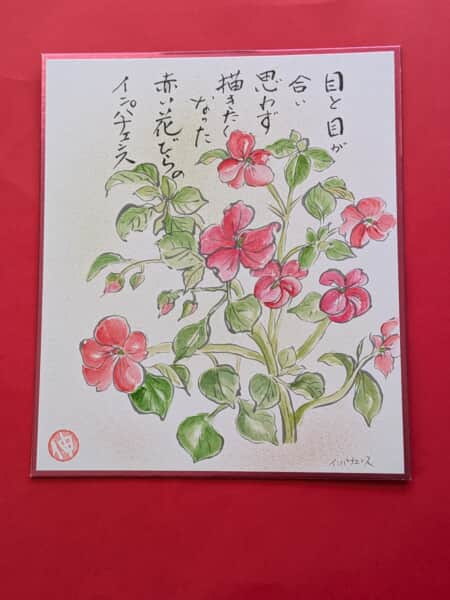 目と目が
合い
思わず
描きたく
なった
赤い花びらの
インパチェンス
インパチェンス